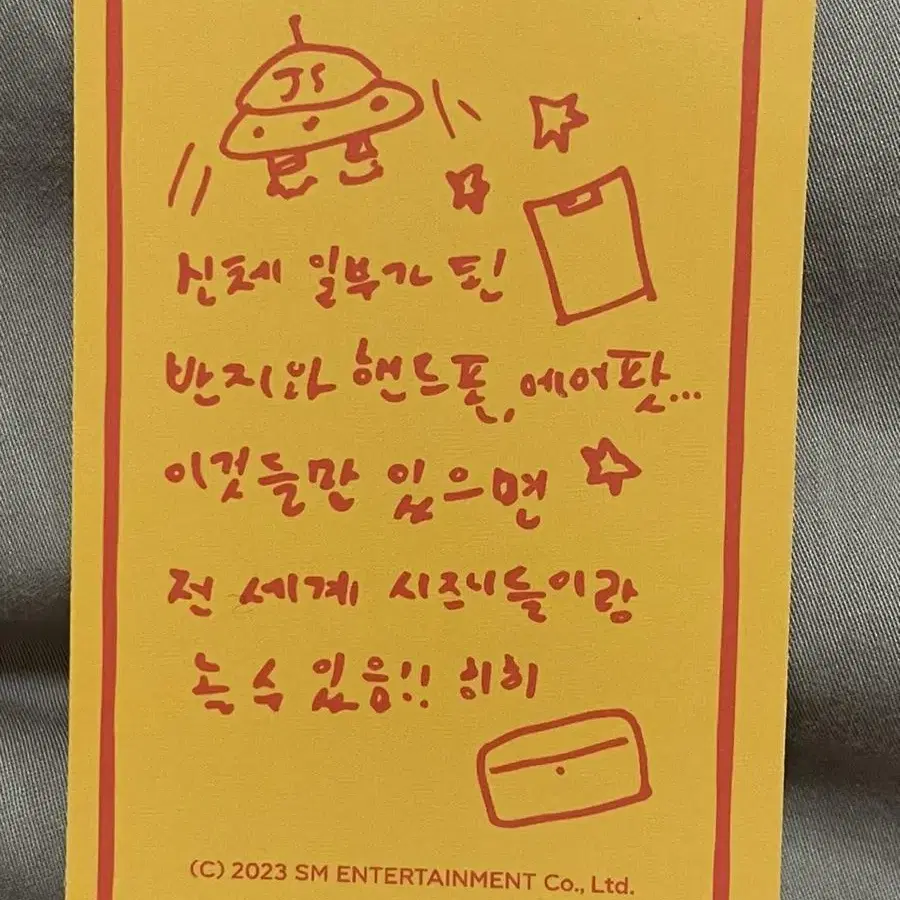 JS
신체 일부가 된
반지와 핸드폰, 에어팟...
이것들만 있으면
전 세계 시즈니들이랑
놀 수 있음!! 히히
(C) 2023 SM ENTERTAINMENT Co., Ltd.